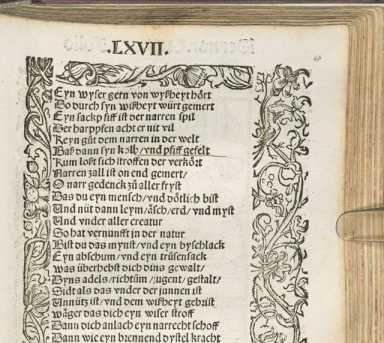 .LXVII.
Eyn wyser gern von wyßheyt hört
Do durch syn wißheyt würt gemert
Eyn sackpfiff ist der narren spil
Der harppfen acht er nit vil
Keyn güt dem narren in der welt
Baß dann syn kolb / vnd pfiff gefelt
Kum loßt sich stroffen der verkört
Narren zall ist on end gemert /
O narr gedenck zů aller fryst
Das du eyn mensch / vnd dötlich bist
Und nüt dann leym / äsch / erd / vnd myst
Und vnder aller creatur
So hat vernunfft in der natur
Bist du das mynst / vnd eyn byschlack
Eyn abschum / vnd eyn trůsensack
was überhebst dich dins gewalt /
Dyns adels / richtům / jugent / gestalt /
Sidt als das vnder der sunnen ist
Unnütz ist / vnd dem wißheyt gebrist
wäger das dich eyn wiser stroff
Dann dich anlach eyn narrecht schoff
Dann wie eyn brennend dystel kracht